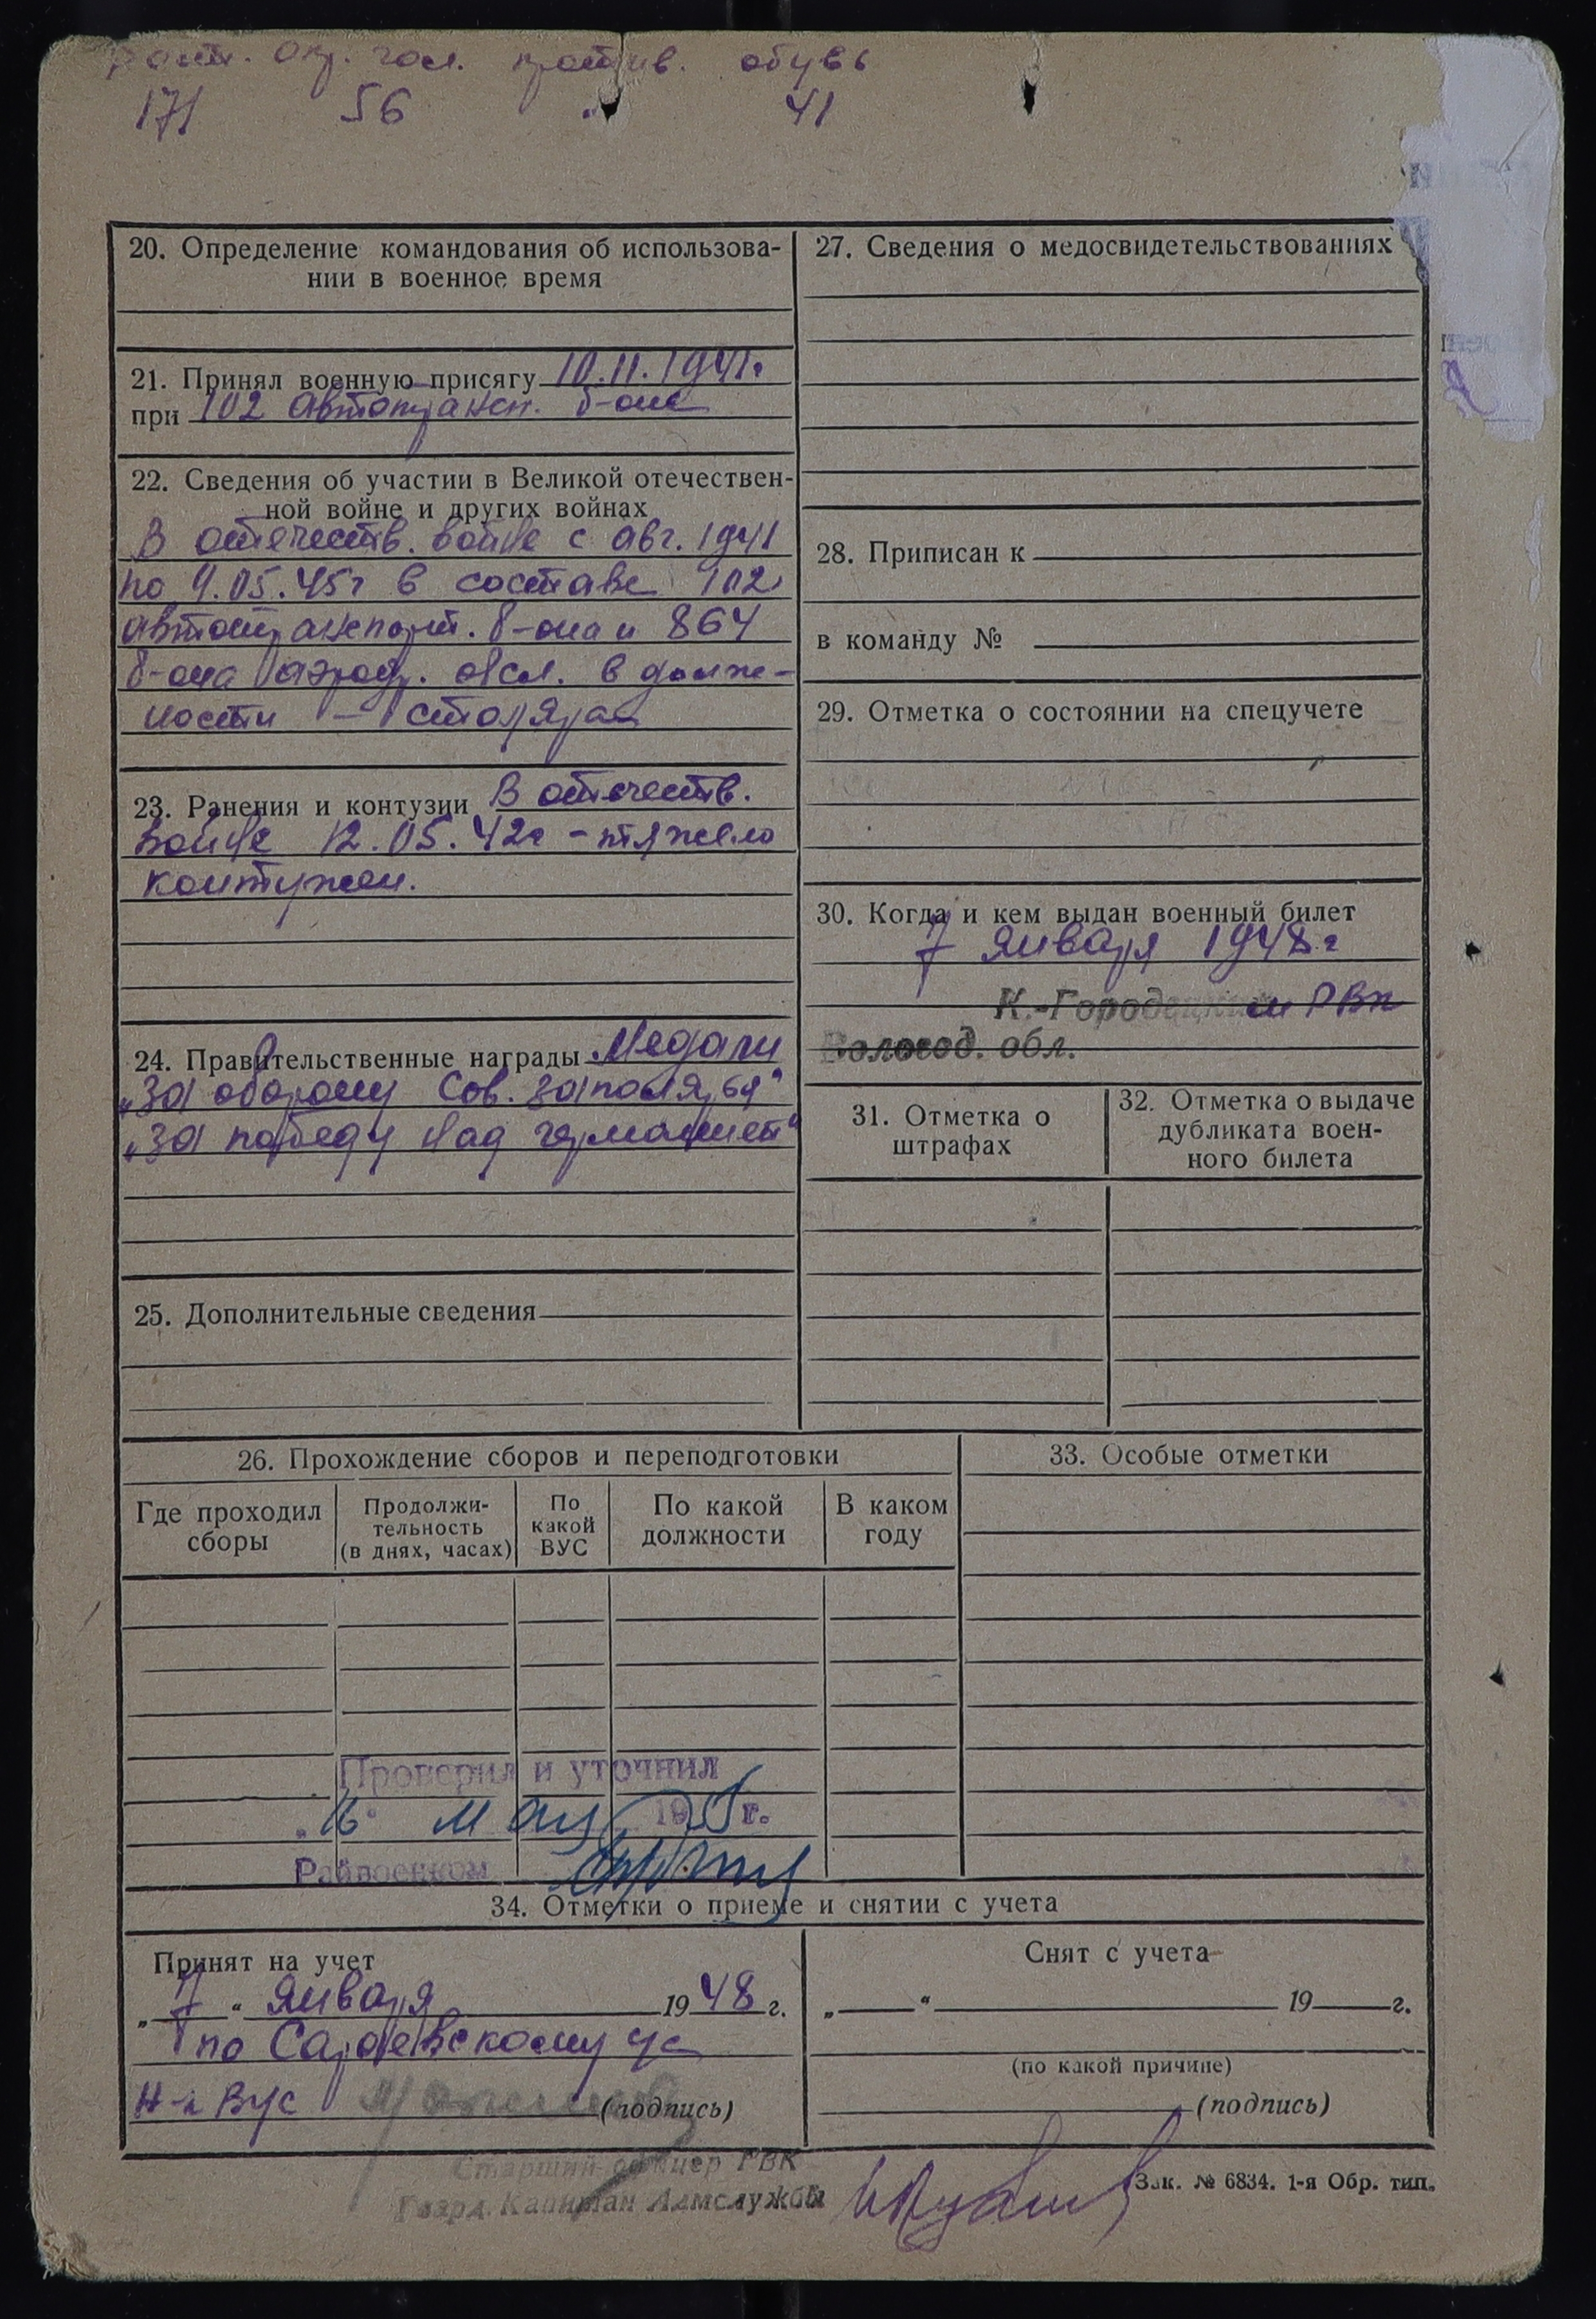 рост. окр. гол. против. обувь
171 56 " 41
20. Определение командования об использова-
нии в военное время
21. Принял военную присягу 10.11.1941г
при 102 автотрансп. б-оне
22. Сведения об участии в Великой отечествен-
ной войне и других войнах
В отечеств. войне с авг. 1941
по 9.05.45г в составе 102
автотранспорт. б-она и 864
б-она аэродр. обсл. в долж-
ности – столяра
23. Ранения и контузии В отечеств.
войне 12.05.42г - тяжело
контужен.
24. Правительственные награды Медали
„За оборону Сов. заполярья"
„За победу над германией"
25. Дополнительные сведения
26. Прохождение сборов и переподготовки
Где проходил
сборы
Продолжи-
тельность
(в днях, часах)
По
какой
ВУС
По какой
должности
В каком
году
Проверил и уточнил
„16" мая 195 г.
Райвоенком
27. Сведения о медосвидетельствованиях
28. Приписан к
в команду №
29. Отметка о состоянии на спецучете
30. Когда и кем выдан военный билет
7 января 1948г
К.-Городецким РВК
Вологод. обл.
31. Отметка о
штрафах
32. Отметка о выдаче
дубликата воен-
ного билета
33. Особые отметки
34. Отметки о приеме и снятии с учета
Принят на учет
„7" января 1948 г.
по Сараевскому ус
Н-к ВУС (подпись)
Старший офицер РВК
Гвард. Капитан Адмслужбы
Снят с учета
„ " 19 г.
(по какой причине)
(подпись)
Зак. № 6834. 1-я Обр. тип.